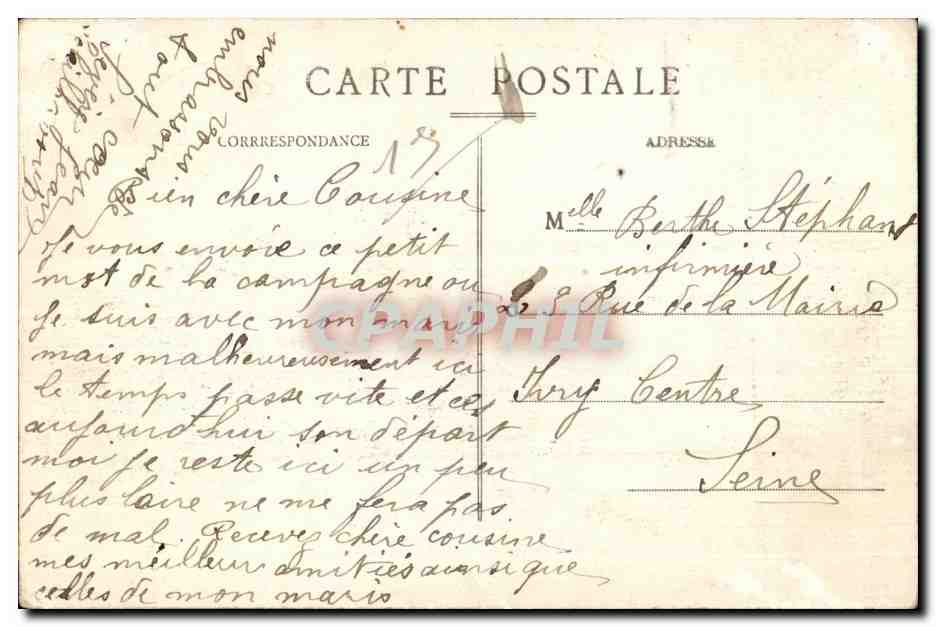 CARTE POSTALE
CORRRESPONDANCE
ADRESSE
nous vous
embrassons
tout
Bien chère Cousine
Je vous envoie ce petit
mot de la campagne ou
je suis avec mon mari
mais malheureusement ici
le temps passe vite et ces
aujourd'hui son départ
moi je reste ici un peu
plus l'aire ne me fera pas
de mal. Recevez chère cousine
mes meilleur amitiés ainsi que
celles de mon maris
Melle Berthe Stéphan
infirmière
2 9 Rue de la Mairie
Ivry Centre
Seine
CPAPHIL